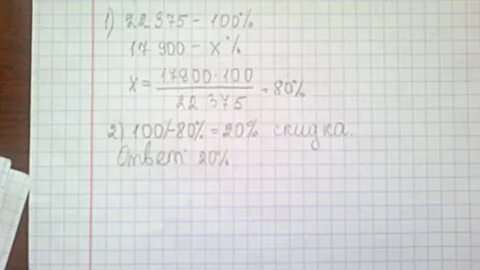 1) 22 375 - 100%
17 900 - x%
x = 17900·100 / 22 375 = 80%
2) 100%-80% = 20% скидка.
Ответ: 20%